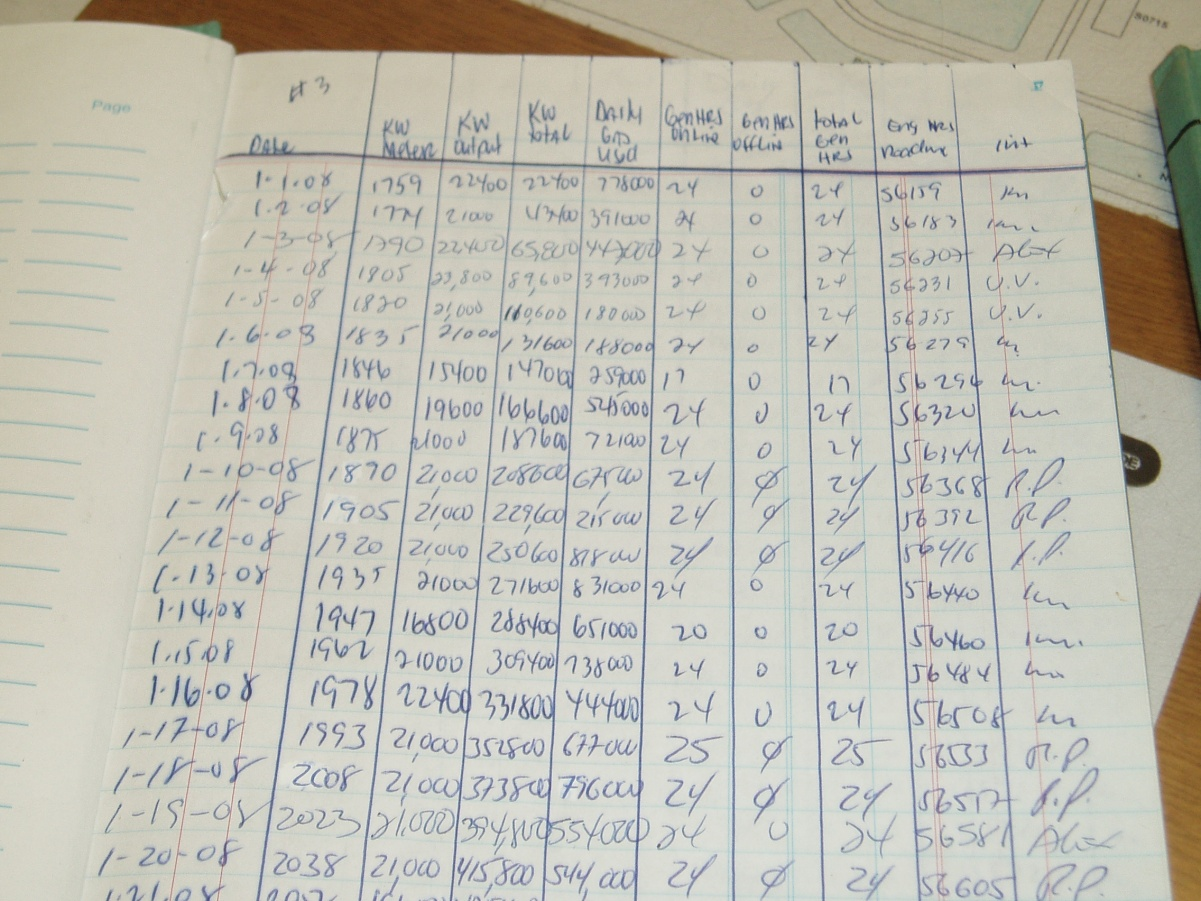 Page
# 3
37
Date KW Meter KW output KW total Daily Gas Used Gen HRS online Gen HRS offline total Gen HRS Eng HRS Reading init
1.1.08 1759 22400 22400 778000 24 0 24 56159 km
1.2.08 1774 21000 43400 391000 24 0 24 56183 km
1-3-08 1790 22400 65,800 447000 24 0 24 56207 Alex
1-4-08 1805 23,800 89,600 393000 24 0 24 56231 U.V.
1-5-08 1820 21,000 110,600 180000 24 0 24 56255 U.V.
1.6.08 1835 21000 131600 188000 24 0 24 56279 km
1.7.08 1846 15400 147000 259000 17 0 17 56296 km.
1.8.08 1860 19600 166600 545000 24 0 24 56320 km
1.9.08 1875 21000 187600 721000 24 0 24 56344 km
1-10-08 1890 21,000 208600 675000 24 0 24 56368 R.P.
1-11-08 1905 21,000 229,600 215000 24 0 24 56392 R.P.
1-12-08 1920 21,000 250600 878000 24 0 24 56416 R.P.
1.13.08 1935 21000 271600 831000 24 0 24 56440 km
1.14.08 1947 16800 288400 651000 20 0 20 56460 km.
1.15.08 1962 21000 309400 738000 24 0 24 56484 km
1.16.08 1978 22400 331800 444000 24 0 24 56508 km
1-17-08 1993 21,000 352800 677000 25 0 25 56533 R.P.
1-18-08 2008 21,000 373800 796000 24 0 24 56557 R.P.
1-19-08 2023 21,000 394,800 554000 24 0 24 56581 Alex
1-20-08 2038 21,000 415,800 544,000 24 0 24 56605 R.P.
1.21.08